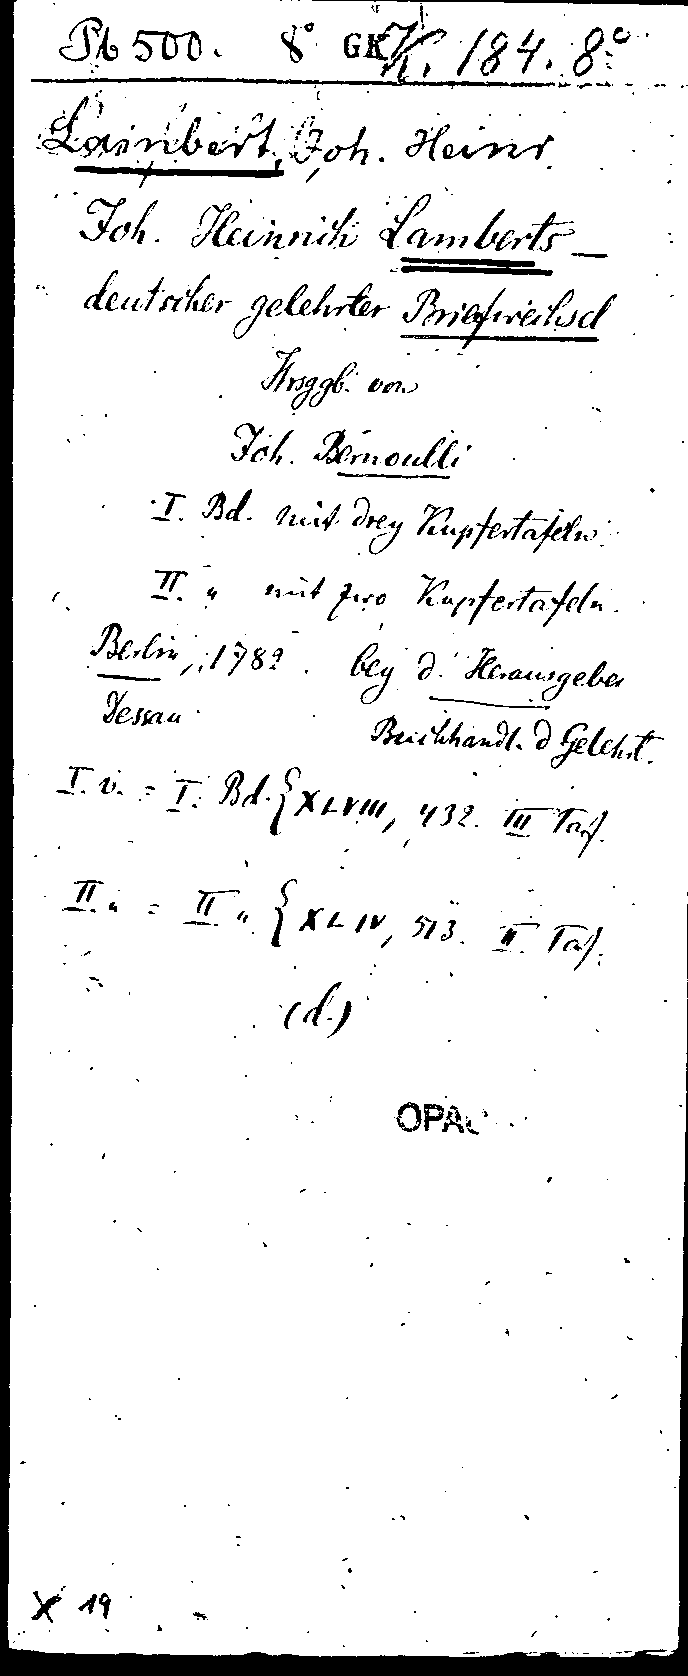 Pb 500. 8° GK K. 184. 8°
Lambert, Joh. Heinr.
Joh. Heinrich Lamberts
deutscher gelehrter Briefwechsel
Hrsggb. von
Joh. Bernoulli
I. Bd. mit drey Kupfertafeln.
II. " mit zwo Kupfertafeln.
Berlin, 1782. bey d. Herausgeber
Dessau Buchhandl. d Gelehrt.
I. v. = I. Bd. { XLVIII, 432. III Taf.
II. " = II " { XLIV, 513. II. Taf.
(d.)
OPAC
X 19